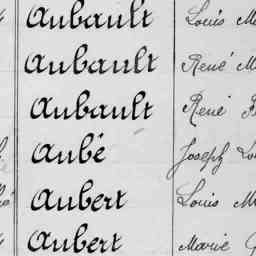 Aubault Louis
Aubault René
Aubault René
Aubé Joseph
Aubert Louis
Aubert Marie